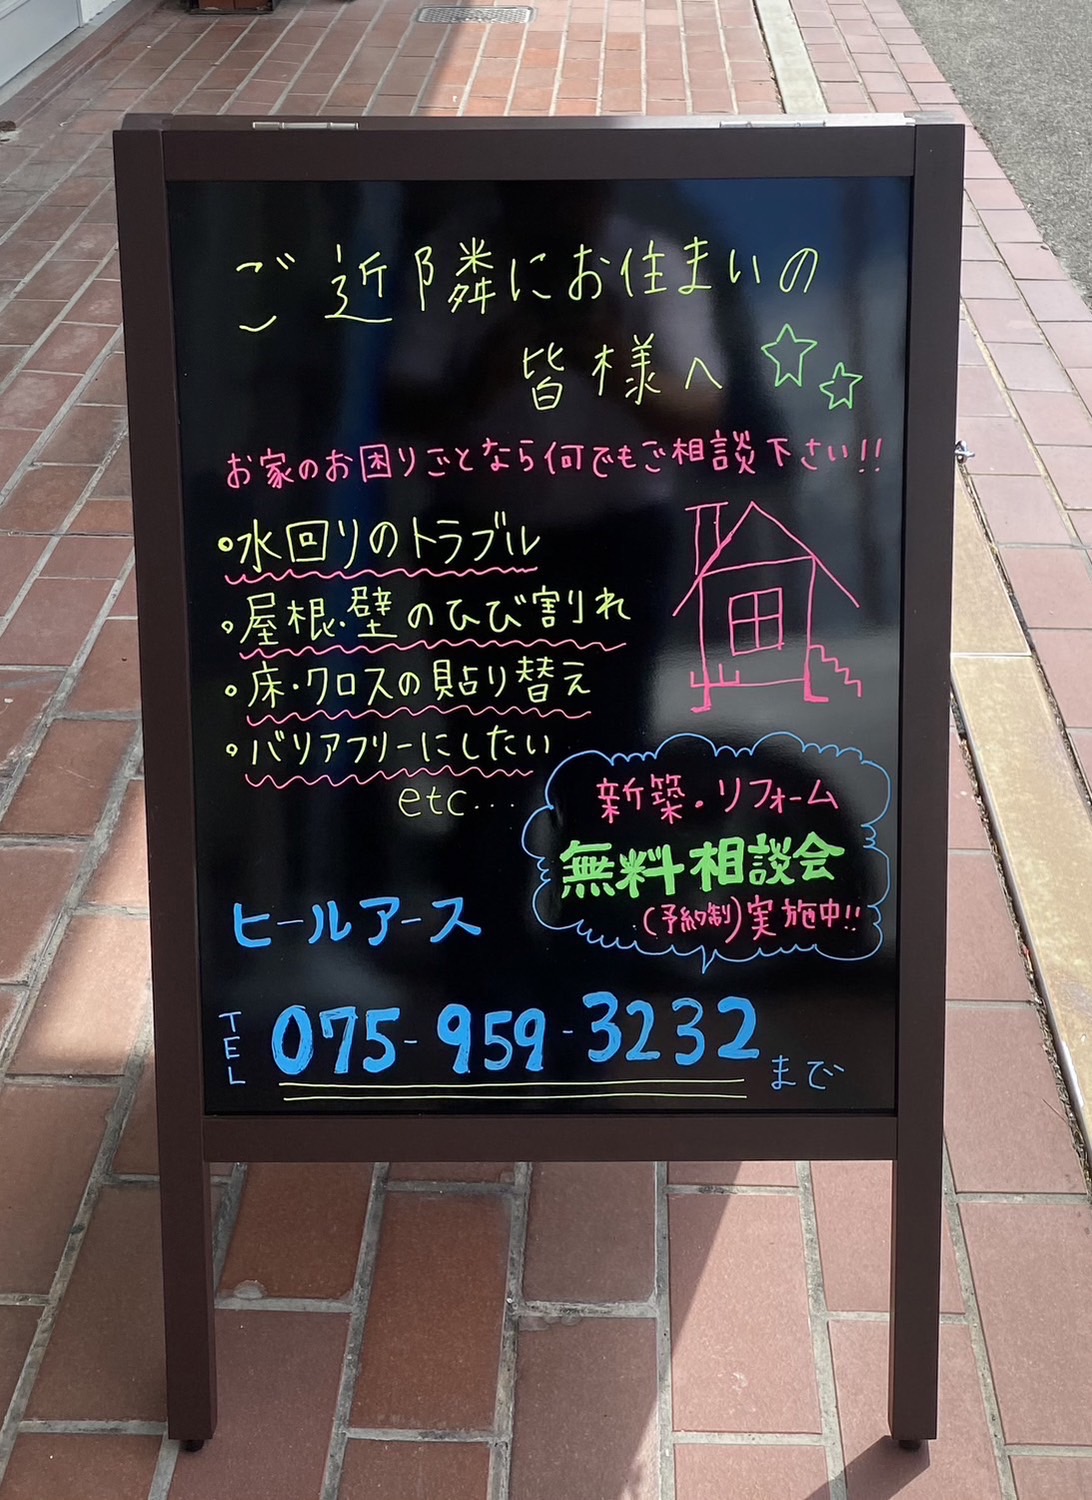 ご近隣にお住まいの
皆様へ
お家のお困りごとなら何でもご相談下さい!!
・水回りのトラブル
・屋根・壁のひび割れ
・床・クロスの貼り替え
・バリアフリーにしたい
etc...
新築・リフォーム
無料相談会
(予約制)実施中!!
ヒールアース
TEL 075-959-3232まで